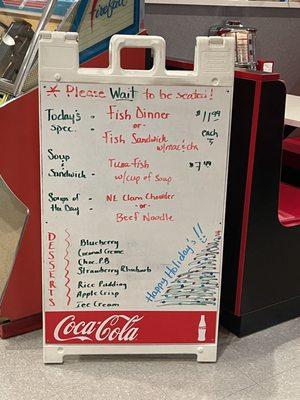 Fireball
* Please Wait to be seated!
Today's - Fish Dinner $11.99
Spec. - or -
Fish Sandwich each
w/mac & ch
Soup - Tuna-fish $7.99
& Sandwich - w/cup of Soup
Soups of - NE Clam Chowder
the Day - or -
Beef Noodle
DESSERTS
Blueberry
Coconut Creme
Choc. P.B
Strawberry Rhubarb
Rice Pudding
Apple Crisp
Ice Cream
Happy Holiday's!!
Coca-Cola